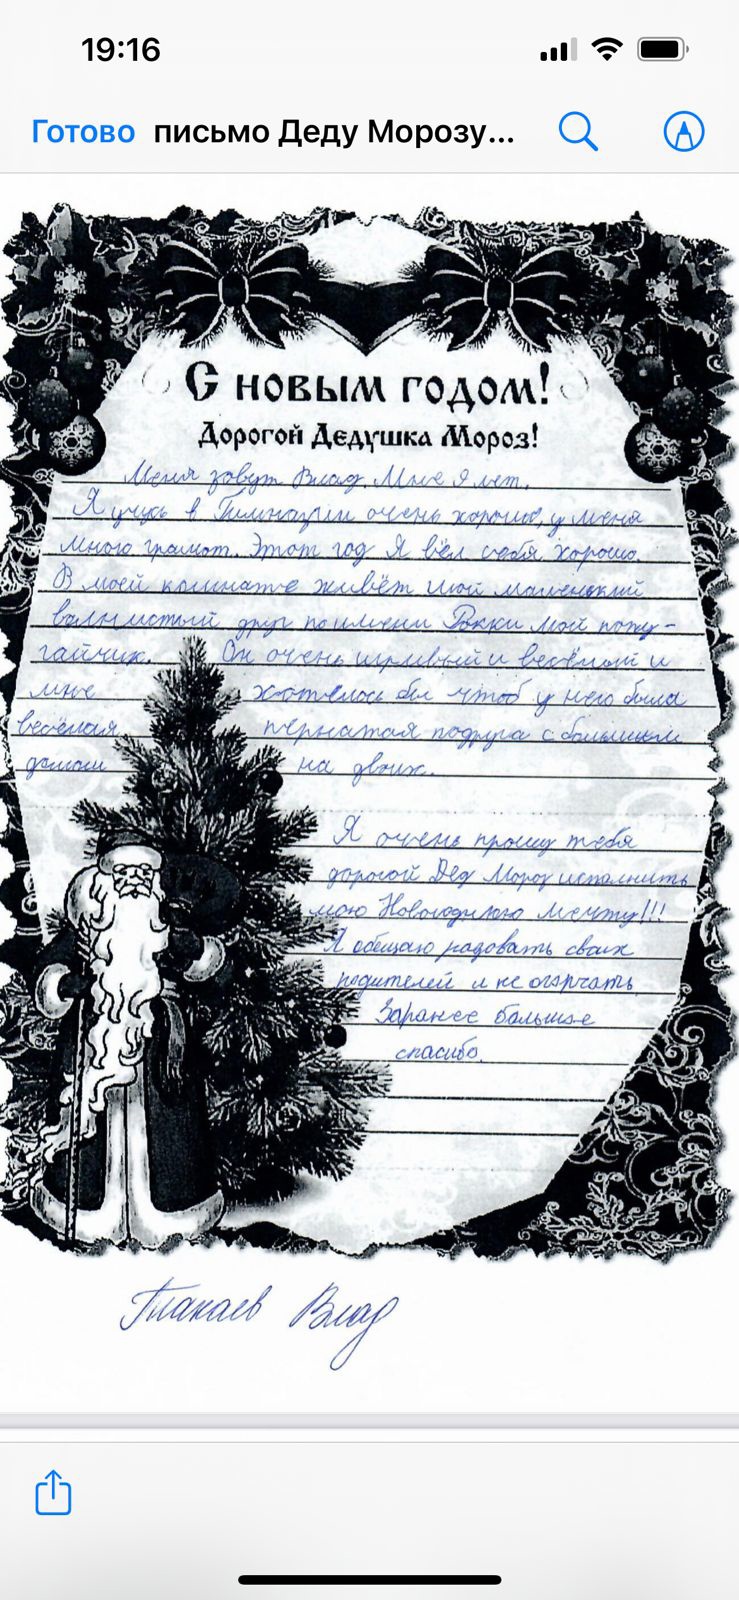 19:16
Готово письмо Деду Морозу...
С новым годом!
Дорогой Дедушка Мороз!
Меня зовут Влад. Мне 9 лет.
Я учусь в Гимназии очень хорошо, у меня
много грамот. Этот год Я вёл себя хорошо.
В моей комнате живёт мой маленький
волнистый друг по имени Рокки мой попу-
гайчик. Он очень игривый и весёлый и
мне хотелось бы чтоб у него была
весёлая пернатая подруга с большим
домом на двоих.
Я очень прошу тебя
дорогой Дед Мороз исполнить
мою Новогоднюю мечту!!!
Я обещаю радовать своих
родителей и не огорчать
Заранее большое
спасибо.
Влад